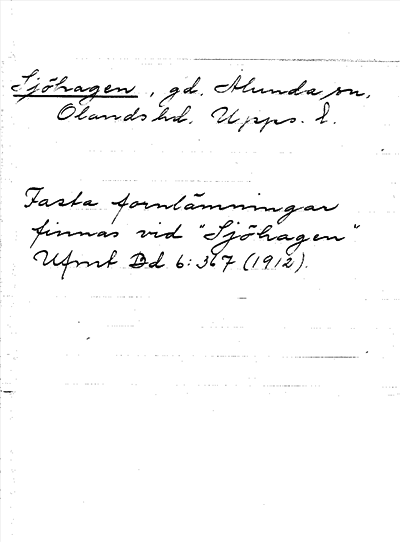 Sjöhagen, gd. Alunda sn,
Olands hd. Upps. l.
Fasta fornlämningar
finnas vid "Sjöhagen"
Ufmt Bd 6:367 (1912).